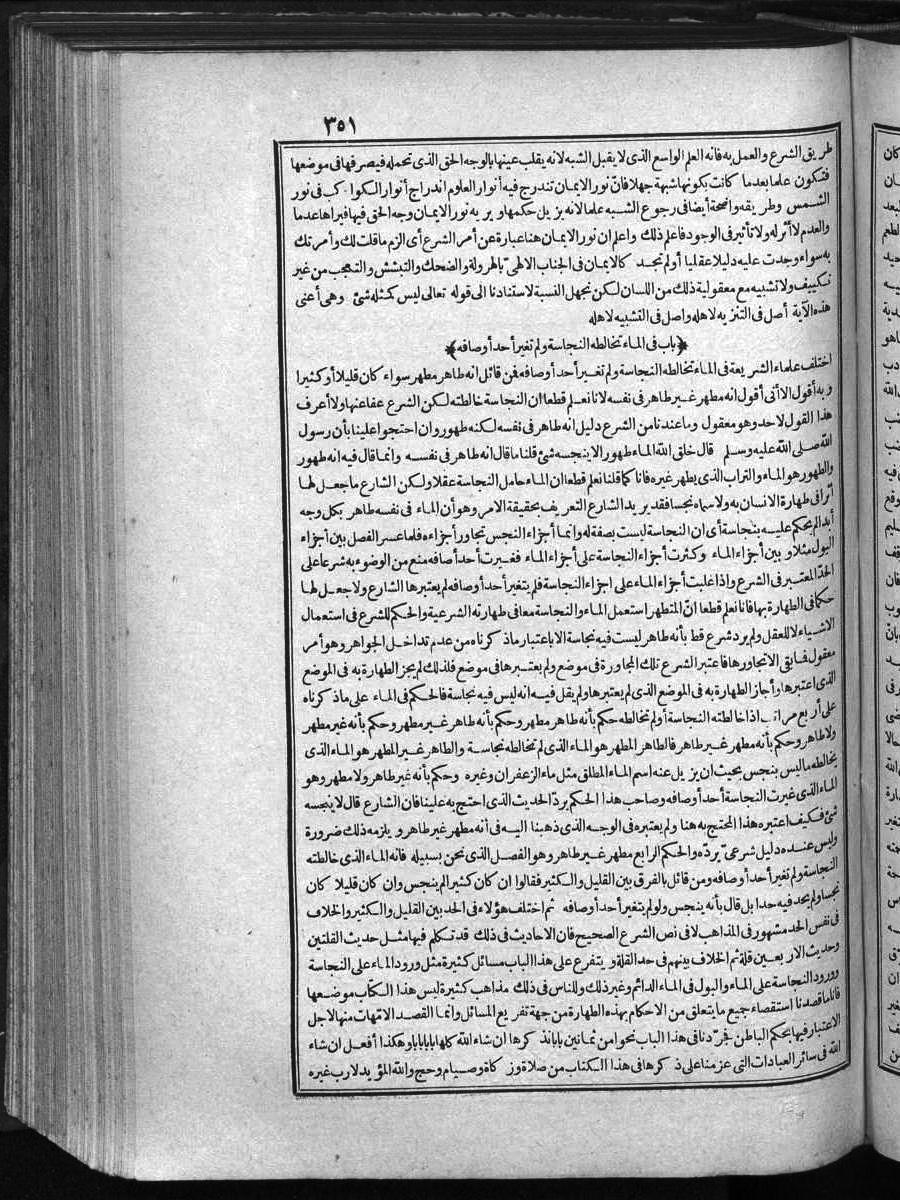 ٣٥١
طريق الشرع والعمل به فانه العلم الواسع الذى لا يقبل الشبه لانه يقلب عينها بالوجه الحق الذى تحمله فيصرفها فى موضعها
فتكون علما بعدما كانت بكونها شبهة جهلا فان نور الايمان تندرج فيه أنوار العلوم اندراج أنوار الكواكب فى نور
الشمس وطريقه واضحة أيضا فى رجوع الشبه علما لانه يزيل حكمها ويريه نور الايمان وجه الحق فيها فيراها عدما
والعدم لا أثر له ولا تأثير فى الوجود فاعلم ذلك واعلم ان نور الايمان هنا عبارة عن أمر الشرع أى الزم ما قلت لك وأمرتك
به سواء وجدت عليه دليلا عقليا أو لم تجد كالايمان فى الجناب الالهىّ بالهرولة والضحك والتبشش والتعجب من غير
تكييف ولا تشبيه مع معقولية ذلك من اللسان لكن نجهل النسبة لاستنادنا الى قوله تعالى ليس كمثله شئ وهى أعنى
هذه الآية أصل فى التنزيه لاهله واصل فى التشبيه لاهله
﴿باب فى الماء تخالطه النجاسة ولم تغير أحد أوصافه﴾
اختلف علماء الشريعة فى الماء تخالطه النجاسة ولم تغير أحد أوصافه فمن قائل انه طاهر مطهر سواء كان قليلا أو كثيرا
وبه أقول الا أنى أقول انه مطهر غير طاهر فى نفسه لانا نعلم قطعا ان النجاسة خالطته لكن الشرع عفا عنها ولا أعرف
هذا القول لاحد وهو معقول وما عندنا من الشرع دليل انه طاهر فى نفسه لكنه طهور وان احتجوا علينا بأن رسول
الله صلى الله عليه وسلم قال خلق الله الماء طهورا لا ينجسه شئ قلنا ما قال انه طاهر فى نفسه وانما قال فيه انه طهور
والطهور هو الماء والتراب الذى يطهر غيره فانا كما قلنا نعلم قطعا ان الماء حامل النجاسة عقلا ولكن الشارع ما جعل لها
أثرا فى طهارة الانسان به ولا سماه نجسا فقد يريد الشارع التعريف بحقيقة الامر وهو أن الماء فى نفسه طاهر بكل وجه
أبدا لم يحكم عليه بنجاسة أى ان النجاسة ليست بصفة له وانما أجزاء النجس تجاور أجزاءه فلما عسر الفصل بين أجزاء
البول مثلا وبين أجزاء الماء وكثرت أجزاء النجاسة على أجزاء الماء فغيرت أحد أوصافه منع من الوضوء به شرعا على
الحدّ المعتبر فى الشرع واذا غلبت أجزاء الماء على اجزاء النجاسة فلم يتغير أحد أوصافه لم يعتبرها الشارع ولا جعل لها
حكما فى الطهارة بها فانا نعلم قطعا انّ المتطهر استعمل الماء والنجاسة معا فى طهارته الشرعية والحكم للشرع فى استعمال
الاشياء لا للعقل ولم يرد شرع قط بأنه طاهر ليست فيه نجاسة الا باعتبار ما ذكرناه من عدم تداخل الجواهر وهو أمر
معقول فما بقى الا تجاورها فاعتبر الشرع تلك المجاورة فى موضع ولم يعتبرها فى موضع فلذلك لم يجز الطهارة به فى الموضع
الذى اعتبرها وأجاز الطهارة به فى الموضع الذى لم يعتبرها ولم يقل فيه انه ليس فيه نجاسة فالحكم فى الماء على ما ذكرناه
على أربع مراتب اذا خالطته النجاسة أو لم تخالطه حكم بأنه طاهر مطهر وحكم بأنه طاهر غير مطهر وحكم بأنه غير مطهر
ولا طاهر وحكم بأنه مطهر غير طاهر فالطاهر المطهر هو الماء الذى لم تخالطه نجاسة والطاهر غير المطهر هو الماء الذى
يخالطه ما ليس بنجس بحيث ان يزيل عنه اسم الماء المطلق مثل ماء الزعفران وغيره وحكم بأنه غير طاهر ولا مطهر وهو
الماء الذى غيرت النجاسة أحد أوصافه وصاحب هذا الحكم يردّ الحديث الذى احتج به علينا فان الشارع قال لا ينجسه
شئ فكيف اعتبره هذا المحتج به هنا ولم يعتبره فى الوجه الذى ذهبنا اليه فى أنه مطهر غير طاهر ويلزمه ذلك ضرورة
وليس عنده دليل شرعىّ يردّه والحكم الرابع مطهر غير طاهر وهو الفصل الذى نحن بسبيله فانه الماء الذى خالطته
النجاسة ولم تغير أحد أوصافه ومن قائل بالفرق بين القليل والكثير فقالوا ان كان كثيرا لم ينجس وان كان قليلا كان
نجسا ولم يحد فيه حدا بل قال بأنه ينجس ولو لم يتغير أحد أوصافه ثم اختلف هؤلاء فى الحد بين القليل والكثير والخلاف
فى نفس الحد مشهور فى المذاهب لا فى نص الشرع الصحيح فان الاحاديث فى ذلك قد تكلم فيها مثل حديث القلتين
وحديث الاربعين قلة ثم الخلاف بينهم فى حد القلة ويتفرع على هذا الباب مسائل كثيرة مثل ورود الماء على النجاسة
وورود النجاسة على الماء والبول فى الماء الدائم وغير ذلك وللناس فى ذلك مذاهب كثيرة ليس هذا الكتاب موضعها
فانا ما قصدنا استقصاء جميع ما يتعلق من الاحكام بهذه الطهارة من جهة تفريع المسائل وانما القصد الامّهات منها لاجل
الاعتبار فيها بحكم الباطن فجرّدنا فى هذا الباب نحوا من ثمانين بابا نذكرها ان شاء الله كلها بابا بابا وهكذا أفعل ان شاء
الله فى سائر العبادات التى عزمنا على ذكرها فى هذا الكتاب من صلاة وزكاة وصيام وحج والله المؤيد لا رب غيره